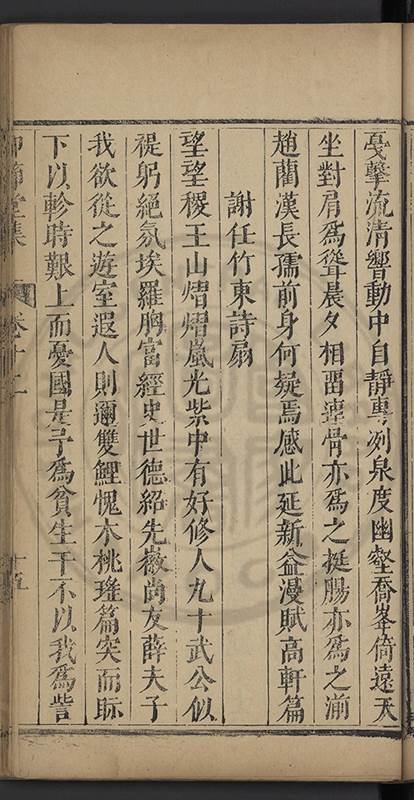 戞擊流清響動中自靜專冽泉度幽壑喬峯倚遠天
坐對肩爲聳晨夕相畱連骨亦爲之挺腸亦爲之湔
趙藺漢長孺前身何疑焉感此延新益漫賦高軒篇
謝任竹東詩扇
望望稷王山熠熠嵐光紫中有好修人九十武公似
禔躬絕氛埃羅胸富經史世德紹先徽尚友薛夫子
我欲從之遊室遐人則邇雙鯉愧木桃瑤篇突而眎
下以軫時艱上而憂國是予爲貧生干不以我爲訾
節堂集
卷十二
十五